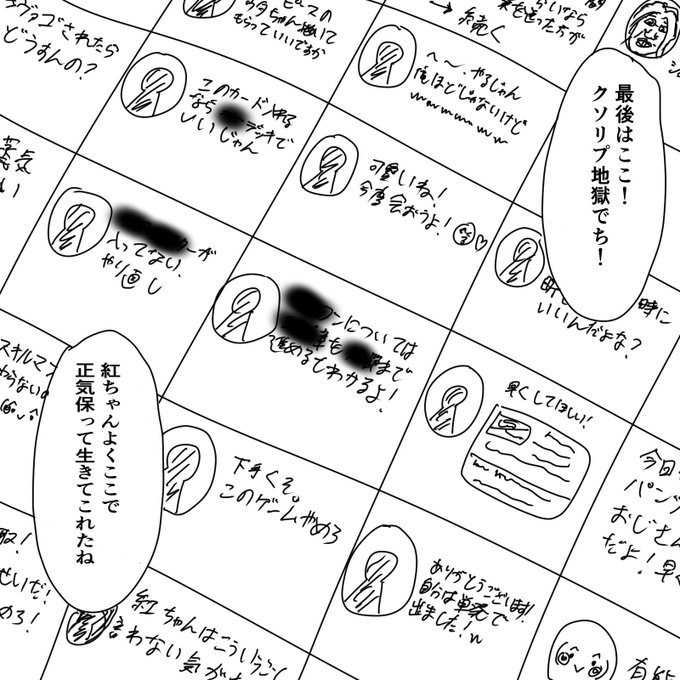 最後はここ！
クソリプ地獄でち！
どうすんの？
もらっていいですか
→ 続く
へ〜、やるじゃん
俺ほどじゃないけど
wwwwwww
このカード入れる
なら
デッキで
いいじゃん
可愛いね！
今度会おうよ！
ーが
入ってない、
やり直し
ンについては
も
まで
進めるとわかるよ！
時に
いいんだよな？
早くしてほしい！
紅ちゃんよくここで
正気保って生きてこれたね
下手くそ。
このゲームやめろ
今回
パンツ
おじさん
だよ！早く
ありがとうございます！
自分は単発で
出ました！w
せいだ！
紅ちゃんはこういうこ
言わない気が